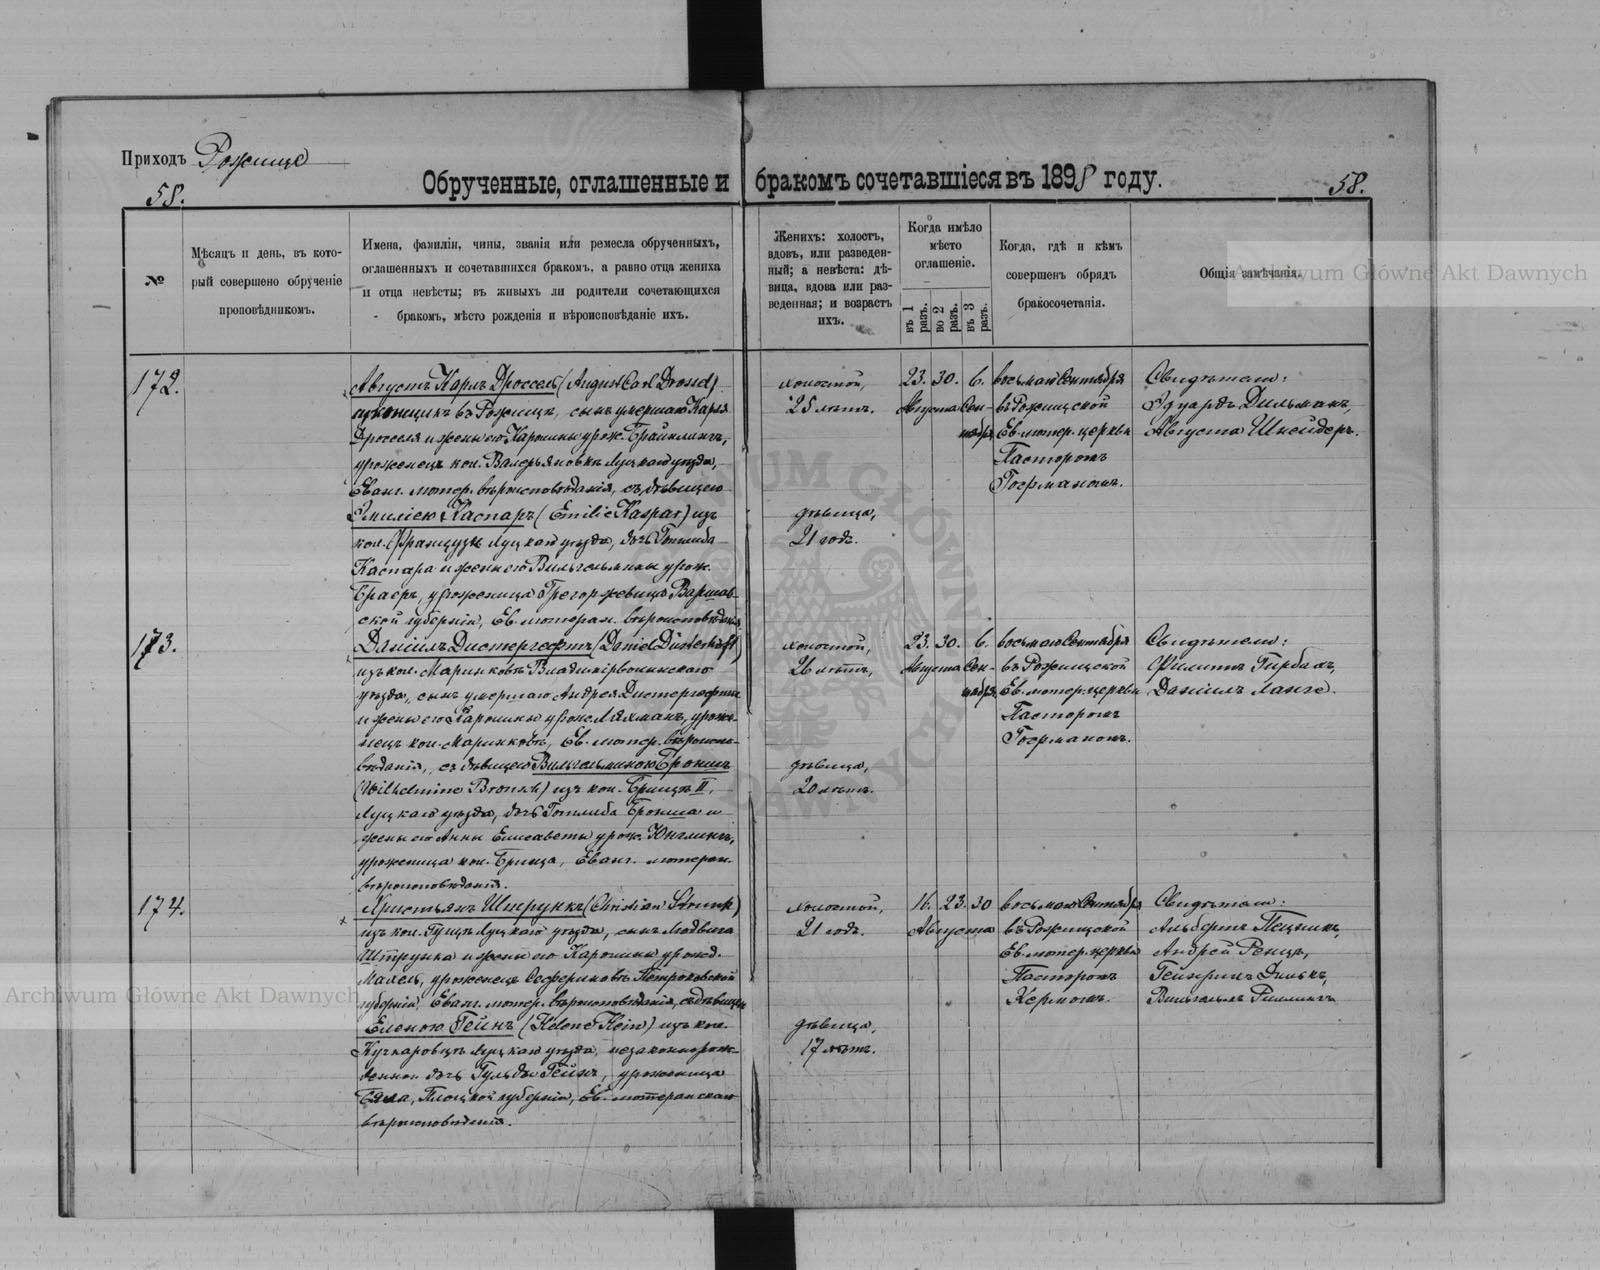 Приходъ Рожище
58.
Обрученные, оглашенные и бракомъ сочетавшіеся въ 1898 году.
58.
№
Мѣсяцъ и день, въ кото-
рый совершено обрученіе
проповѣдникомъ.
Имена, фамиліи, чины, званія или ремесла обрученныхъ,
оглашенныхъ и сочетавшихся бракомъ, а равно отца жениха
и отца невѣсты; въ живыхъ ли родители сочетающихся
бракомъ, мѣсто рожденія и вѣроисповѣданіе ихъ.
Женихъ: холостъ,
вдовъ, или разведен-
ный; а невѣста: дѣ-
вица, вдова или раз-
веденная; и возрастъ
ихъ.
Когда имѣло
мѣсто
оглашеніе.
въ 1 разъ.
во 2 разъ.
въ 3 разъ.
Когда, гдѣ и кѣмъ
совершенъ обрядъ
бракосочетанія.
Общія замѣчанія.
Archiwum Główne Akt Dawnych
172.
Августъ Карлъ Дроссель (August Carl Drossel)
въ Рожищѣ, сынъ умершаго Карла
Дросселя и жены его Каролины урож.
уроженецъ кол. Валерьяновки Луцкаго уѣзда,
Еванг. лютер. вѣроисповѣданія, съ дѣвицею
Эмиліею Каспаръ (Emilie Kaspar) изъ
кол. Луцкаго уѣзда, дочь Готлиба
Каспара и жены его Вильгельмины урож.
уроженица Варшав-
ской губерніи, Ев. лютеран. вѣроисповѣданія.
холостой,
25 лѣтъ.
дѣвица,
21 годъ.
23. 30. 6.
Августа Сен-
тября
восьмаго Сентября
въ Рожищской
Ев. лютер. церкви
Пасторомъ
Госрманомъ.
Свидѣтели:
Эдуардъ Дильманъ,
Августъ Шнейдеръ.
173.
Даніилъ Дистергефтъ (Daniel Düsterhöft)
изъ кол. Маринковъ Владимірволынскаго
уѣзда, сынъ умершаго Андрея Дистергефта
и жены его Каролины урож. Ляхманъ, уроже-
нецъ кол. Маринковъ, Ев. лютер. вѣроиспо-
вѣданія, съ дѣвицею Вильгельминою Броншъ
(Wilhelmine Bronsch) изъ кол. Брищъ II,
Луцкаго уѣзда, дочь Готлиба Бронша и
жены его Анны Елисаветы урож. Юнглингъ,
уроженица кол. Брища, Еванг. лютеран.
вѣроисповѣданія.
холостой,
26 лѣтъ,
дѣвица,
20 лѣтъ.
23. 30. 6.
Августа Сен-
тября.
восьмаго Сентября
въ Рожищской
Ев. лютер. церкви
Пасторомъ
Госрманомъ.
Свидѣтели:
Филиппъ Гирбалъ,
Даніилъ Ланге.
174.
Христьянъ Штрункъ (Christian Strunk)
изъ кол. Гущъ Луцкаго уѣзда, сынъ Людвига
Штрунка и жены его Каролины урожд.
уроженецъ Петроковской
губерніи, Еванг. лютер. вѣроисповѣданія, съ дѣвицею
Еленою Гейнъ (Helene Hein) изъ кол.
Кучкаровцъ Луцкаго уѣзда, незаконнорож-
денной дочь Гульды Гейнъ, уроженица
Плоцкой губерніи, Ев. лютеранскаго
вѣроисповѣданія.
холостой,
21 годъ.
дѣвица,
17 лѣтъ.
16. 23. 30
Августа
восьмаго Сентября
въ Рожищской
Ев. лютер. церкви
Пасторомъ
Кермомъ.
Свидѣтели:
Альбертъ
Андрей Ренцъ,
Гейнрихъ
Вильгельмъ
Archiwum Główne Akt Dawnych